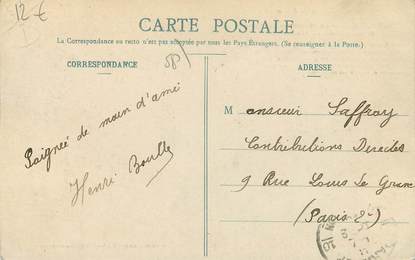 12 €
CARTE POSTALE
La Correspondance au recto n'est pas acceptée par tous les Pays Étrangers. (Se renseigner à la Poste.)
CORRESPONDANCE
58
ADRESSE
Poignée de main d'ami
Henri Boulle
Monsieur Saffray
Contributions Directes
9 Rue Louis Le Grand
(Paris 2e)